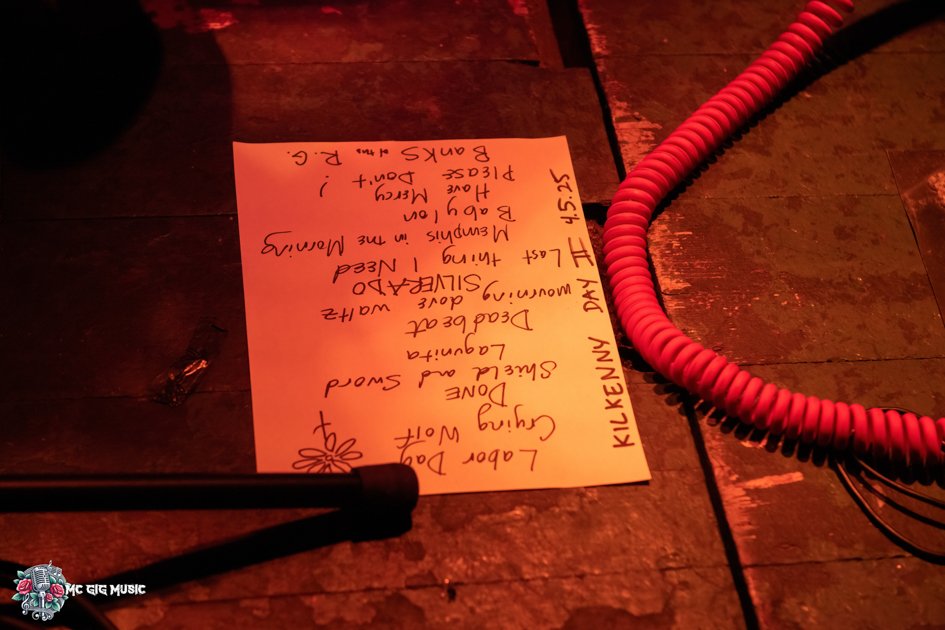 Labor Day
Crying Wolf
DONE
Shield and Sword
Lagunita
Deadbeat
mourning dove waltz
SILVERADO
Last thing I NEED
Memphis in the Morning
Babylon
Have Mercy
PLEASE DON't!
BANKS of the R.G.
KILKENNY DAY II 4.5.25
MC GIG MUSIC